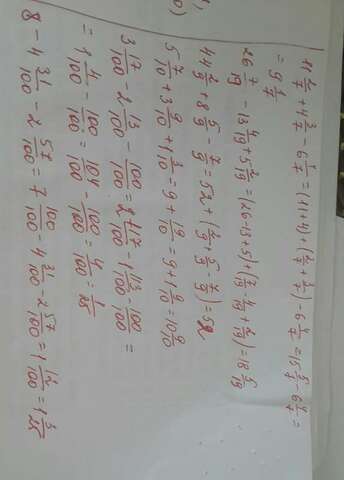 11 2/7 + 4 3/7 - 6 1/7 = (11+4) + (2/7 + 3/7) - 6 4/7 = 15 5/7 - 6 4/7 =
= 9 1/7
26 7/19 - 13 4/19 + 5 2/19 = (26-13+5) + (7/19 - 4/19 + 2/19) = 18 5/19
44 2/9 + 8 5/9 - 7/9 = 52 + (2/9 - 5/9 - 7/9) = 52
5 7/10 + 3 9/10 + 1 3/10 = 9 + 19/10 = 9 + 1 9/10 = 10 9/10
3 17/100 - 2 13/100 - 100/100 = 2 117/100 - 1 113/100 - 100/100 =
= 1 4/100 - 100/100 = 104/100 - 100/100 = 4/100 = 1/25
8 - 4 31/100 - 2 57/100 = 7 100/100 - 4 31/100 - 2 57/100 = 1 12/100 = 1 3/25